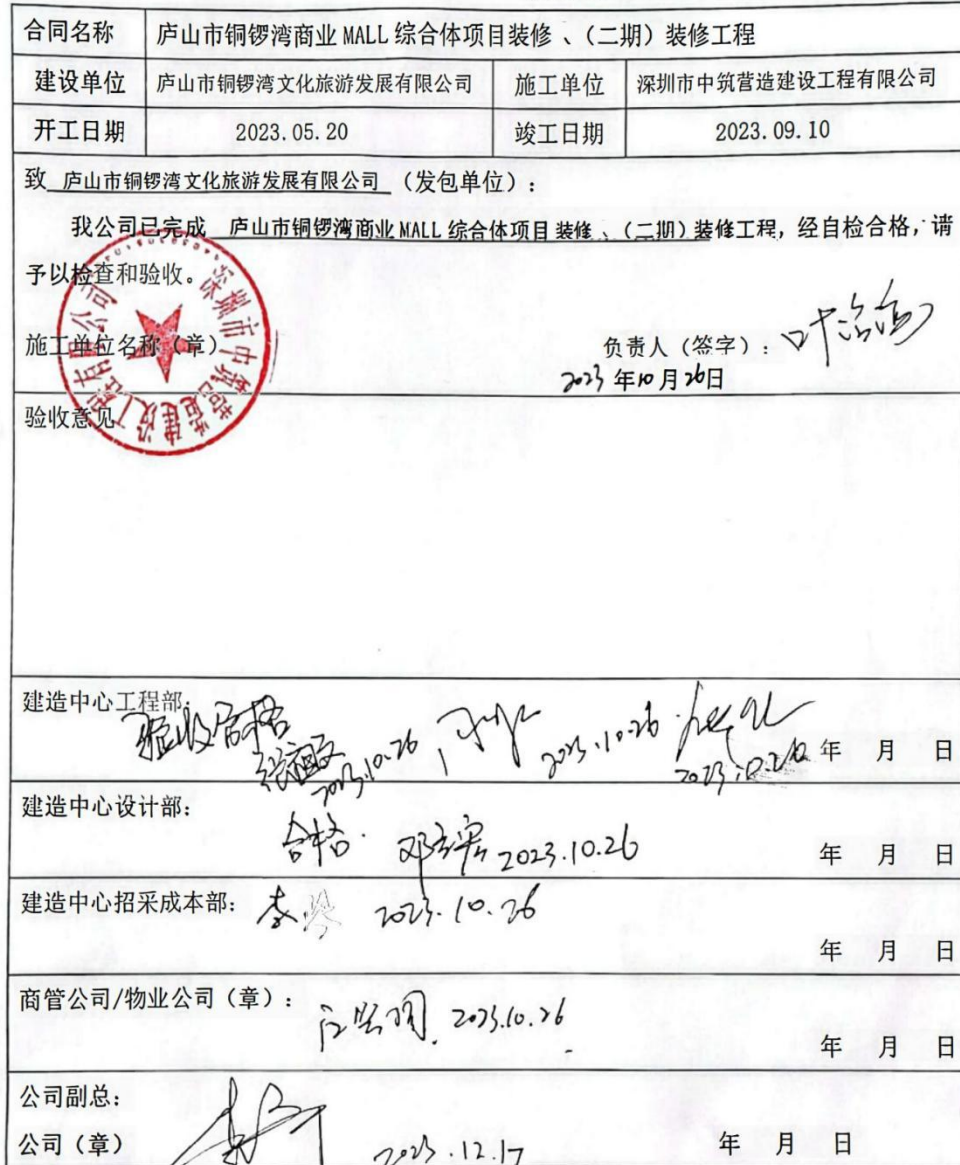 合同名称 庐山市铜锣湾商业 MALL 综合体项目装修 、（二期）装修工程
建设单位 庐山市铜锣湾文化旅游发展有限公司 施工单位 深圳市中筑营造建设工程有限公司
开工日期 2023.05.20 竣工日期 2023.09.10
致 庐山市铜锣湾文化旅游发展有限公司 （发包单位）：
我公司已完成 庐山市铜锣湾商业 MALL 综合体项目 装修 、（二期）装修工程，经自检合格，请
予以检查和验收。
深圳市中筑营造建设工程有限公司
施工单位名称（章） 负责人（签字）：
2023 年 10 月 26日
验收意见
建造中心工程部：
验收合格
2023.10.26 2023.10.26 2023.10.26 年 月 日
建造中心设计部：
合格 2023.10.26
年 月 日
建造中心招采成本部： 2023.10.26
年 月 日
商管公司/物业公司（章）： 2023.10.26
年 月 日
公司副总：
公司（章） 2023.12.17 年 月 日